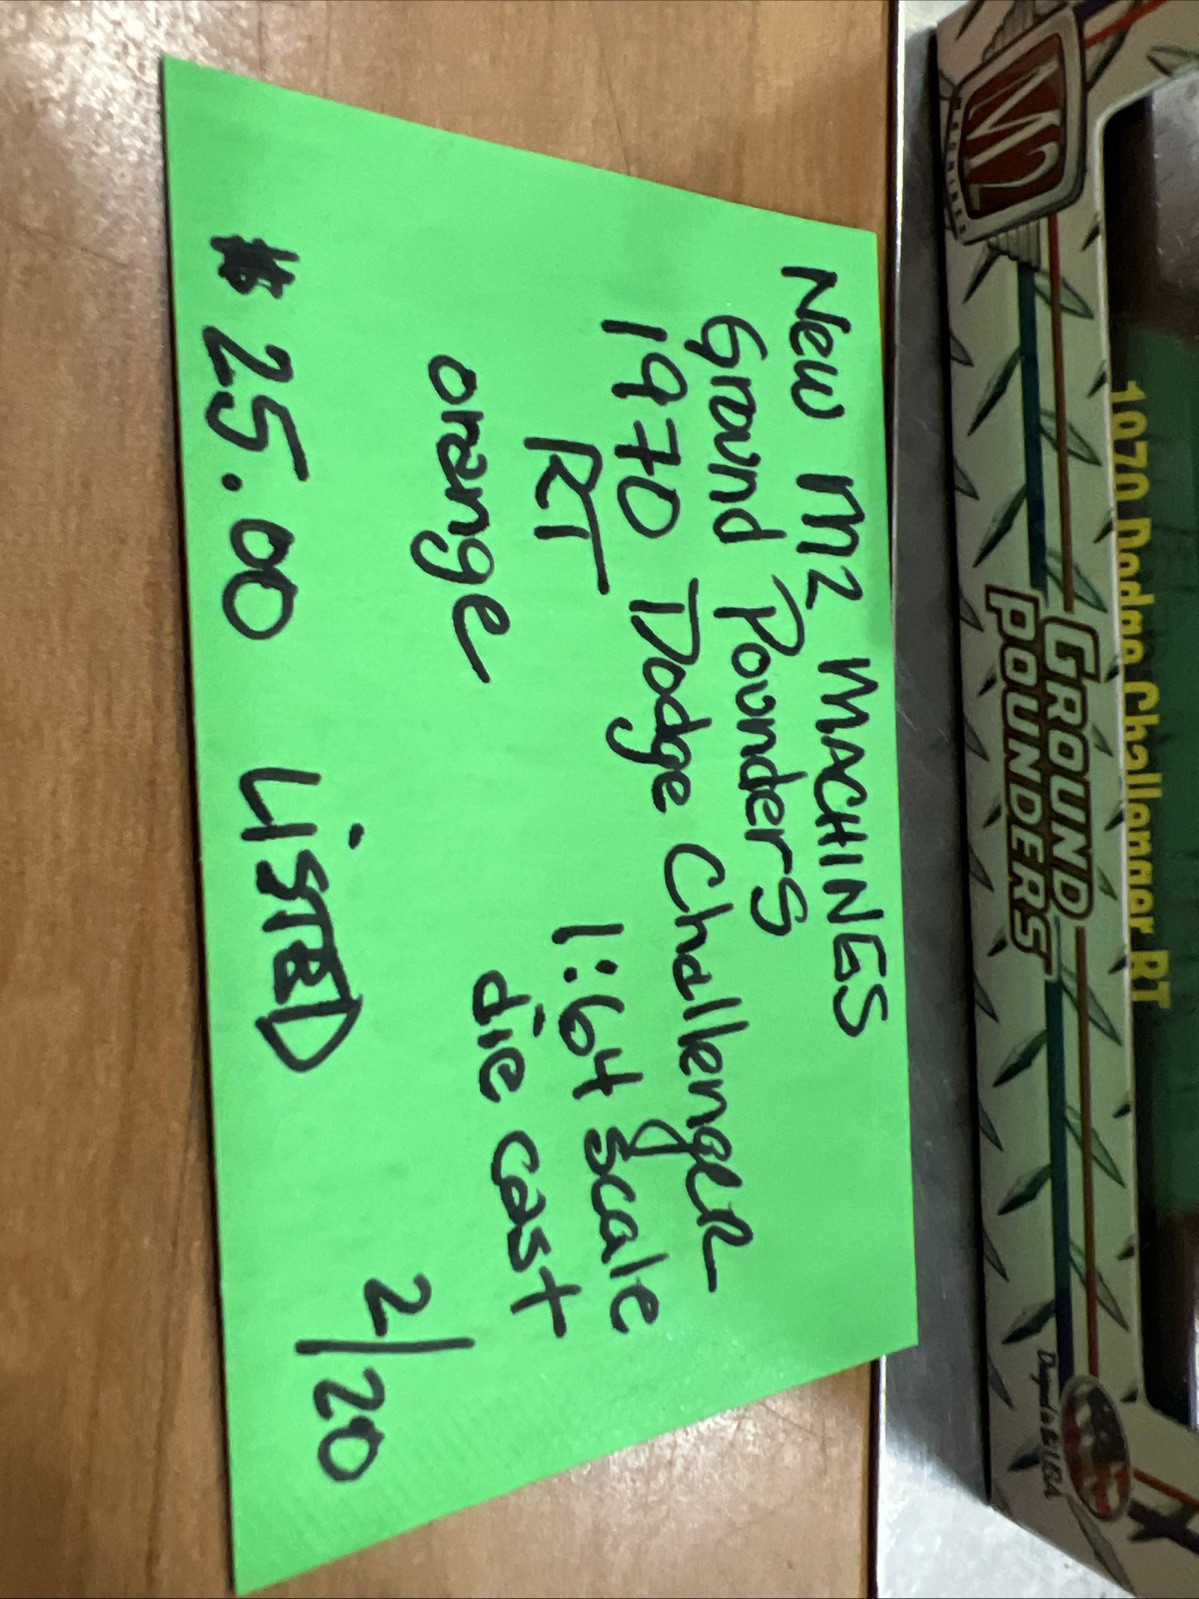 New M2 MACHINES
Ground Pounders
1970 Dodge Challenger
RT
1:64 scale
orange
die cast
$25.00 LISTED 2/20
M2
MACHINES
GROUND
POUNDERS
1970 Dodge Challenger RT